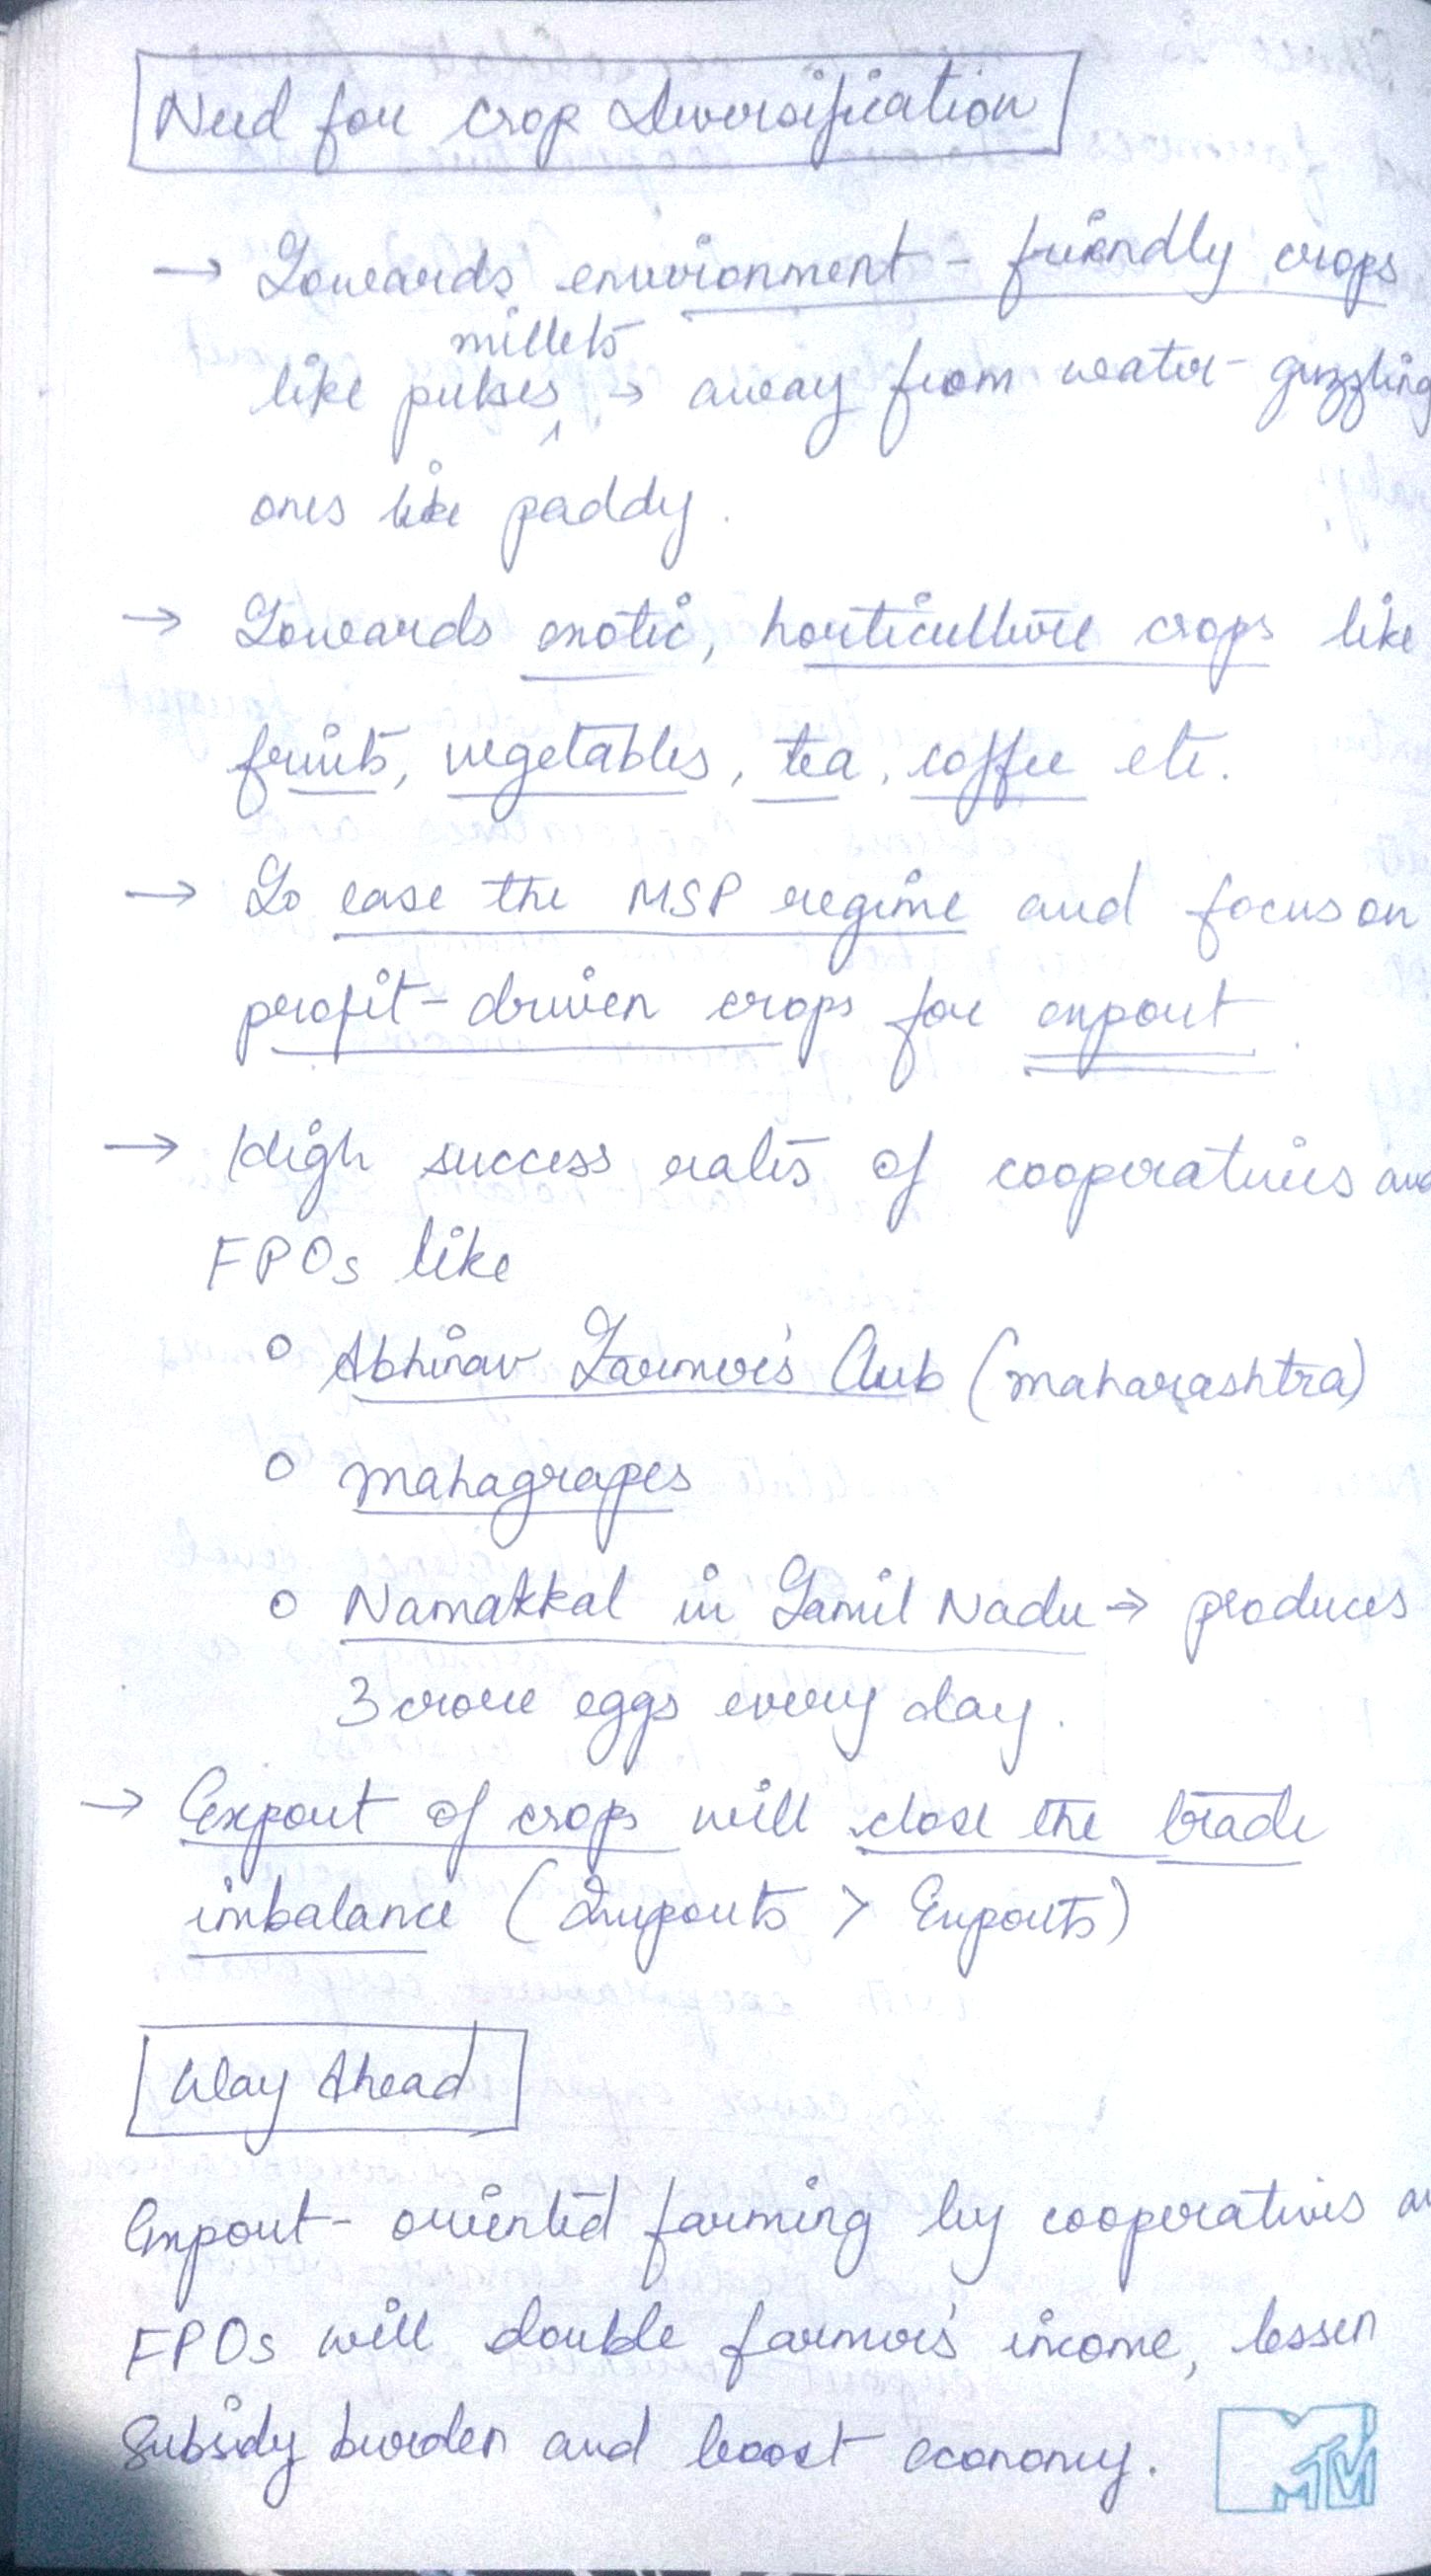 Need for crop diversification
→ Towards environment-friendly crops
millets
like pulses, → away from water-guzzling
ones like paddy.
→ Towards exotic, horticulture crops like
fruits, vegetables, tea, coffee etc.
→ To ease the MSP regime and focus on
profit-driven crops for export.
→ High success rates of cooperatives and
FPOs like
o Abhinav Farmer's Club (Maharashtra)
o Mahagrapes
o Namakkal in Tamil Nadu → produces
3 crore eggs every day.
→ Export of crops will close the trade
imbalance (Imports > Exports)
Way Ahead
Export-oriented farming by cooperatives
FPOs will double farmer's income, lessen
subsidy burden and boost economy.
MTV